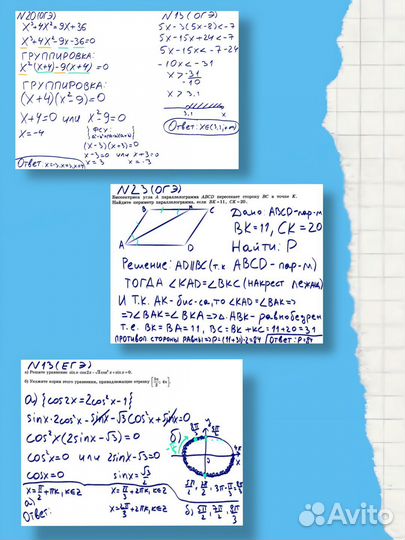 N20(ОГЭ)
x³+4x²=9x+36
x³+4x²-9x-36=0
ГРУППИРОВКА:
x²(x+4)-9(x+4)=0
ГРУППИРОВКА:
(x+4)(x²-9)=0
x+4=0 или x²-9=0
x=-4
(x-3)(x+3)=0
x-3=0 или x+3=0
x=3 x=-3
Ответ: x=-3, x=3, x=-4
N13(ОГЭ)
5x-3(5x-8)<-7
5x-15x+24<-7
5x-15x<-7-24
-10x<-31
x>-31/-10
x>3.1
3.1 x
Ответ: x∈(3,1;+∞)
N23(ОГЭ)
Биссектриса угла A параллелограмма ABCD пересекает сторону BC в точке K.
Найдите периметр параллелограмма, если BK=11, CK=20.
B K C
A D
Дано ABCD-пар-м
BK=11, CK=20
Найти: P
Решение: AD||BC(т.к ABCD-пар-м)
ТОГДА ∠KAD=∠BKC (накрест лежащ)
И Т.К. AK-бис-са, то ∠KAD=∠BAK=>
=>∠BAK=∠BKA=>△ABK-равнобедрен
т.е. BK=BA=11, BC=BK+KC=11+20=31
противоп стороны равны=>P=(11+31)·2=84 Ответ: P=84
N13(ЕГЭ)
а) Решите уравнение sin x·cos2x-√3cos²x+sin x=0.
б) Укажите корни этого уравнения, принадлежащие отрезку [5π/2; 4π].
а) {cos2x=2cos²x-1}
sinx·2cos²x-sinx-√3cos²x+sinx=0
cos²x(2sinx-√3)=0
cos²x=0 или 2sinx-√3=0
cosx=0 sinx=√3/2
x=π/2+πk, k∈Z x=π/3+2πk, k∈Z
x=2π/3+2πk, k∈Z
а)
Ответ:
б)
б) 5π/2, 7π/2, 8π/3
Avito